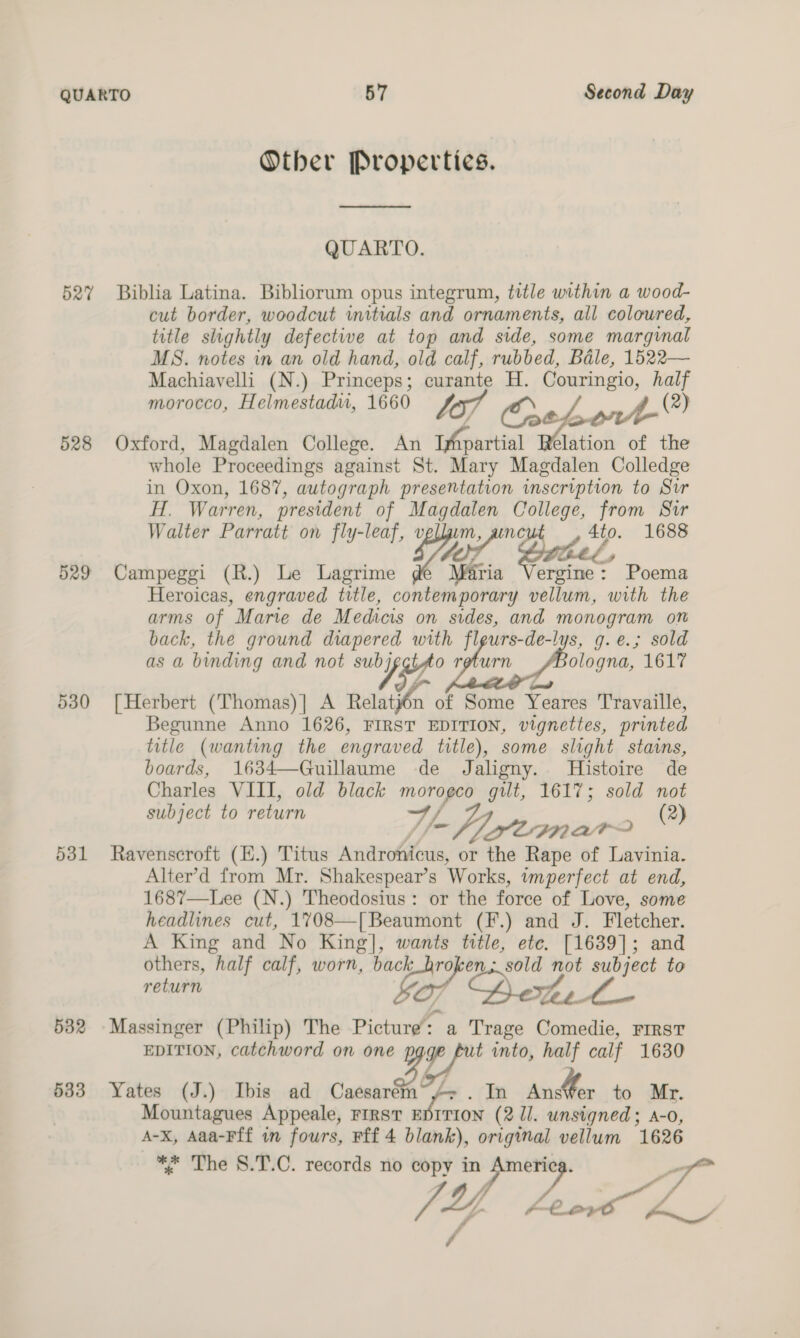 QUARTO 57 Second Day
Other Properties.
QUARTO.
527 Biblia Latina. Bibliorum opus integrum, title within a wood-
cut border, woodcut initials and ornaments, all coloured,
title slightly defective at top and side, some marginal
MS. notes in an old hand, old calf, rubbed, Bâle, 1522—
Machiavelli (N.) Princeps; curante H. Couringio, half
morocco, Helmestadii, 1660 (2)
528 Oxford, Magdalen College. An Impartial Relation of the
whole Proceedings against St. Mary Magdalen Colledge
in Oxon, 1687, autograph presentation inscription to Sir
H. Warren, president of Magdalen College, from Sir
Walter Parratt on fly-leaf, vellum, uncut, 4to. 1688
529 Campeggi (R.) Le Lagrime de Maria Vergine: Poema
Heroicas, engraved title, contemporary vellum, with the
arms of Marie de Medicis on sides, and monogram on
back, the ground diapered with fleurs-de-lys, g. e.; sold
as a binding and not subject to return Bologna, 1617
530 [Herbert (Thomas)] A Relation of Some Yeares Travaille,
Begunne Anno 1626, FIRST EDITION, vignettes, printed
title (wanting the engraved title), some slight stains,
boards, 1634—Guillaume de Jaligny. Histoire de
Charles VIII, old black morocco gilt, 1617; sold not
subject to return (2)
531 Ravenscroft (E.) Titus Andronicus, or the Rape of Lavinia.
Alter'd from Mr. Shakespear's Works, imperfect at end,
1687—Lee (N.) Theodosius: or the force of Love, some
headlines cut, 1708—[Beaumont (F.) and J. Fletcher.
A King and No King], wants title, etc. [1639]; and
others, half calf, worn, back broken; sold not subject to
return
532 Massinger (Philip) The Picture: a Trage Comedie, FIRST
EDITION, catchword on one page cut into, half calf 1630
533 Yates (J.) Ibis ad Caesarem . In Answer to Mr.
Mountagues Appeale, FIRST EDITION (2 ll. unsigned; A-O,
A-X, Aaa-Fff in fours, Fff 4 blank), original vellum 1626
*** The S.T.C. records no copy in America.